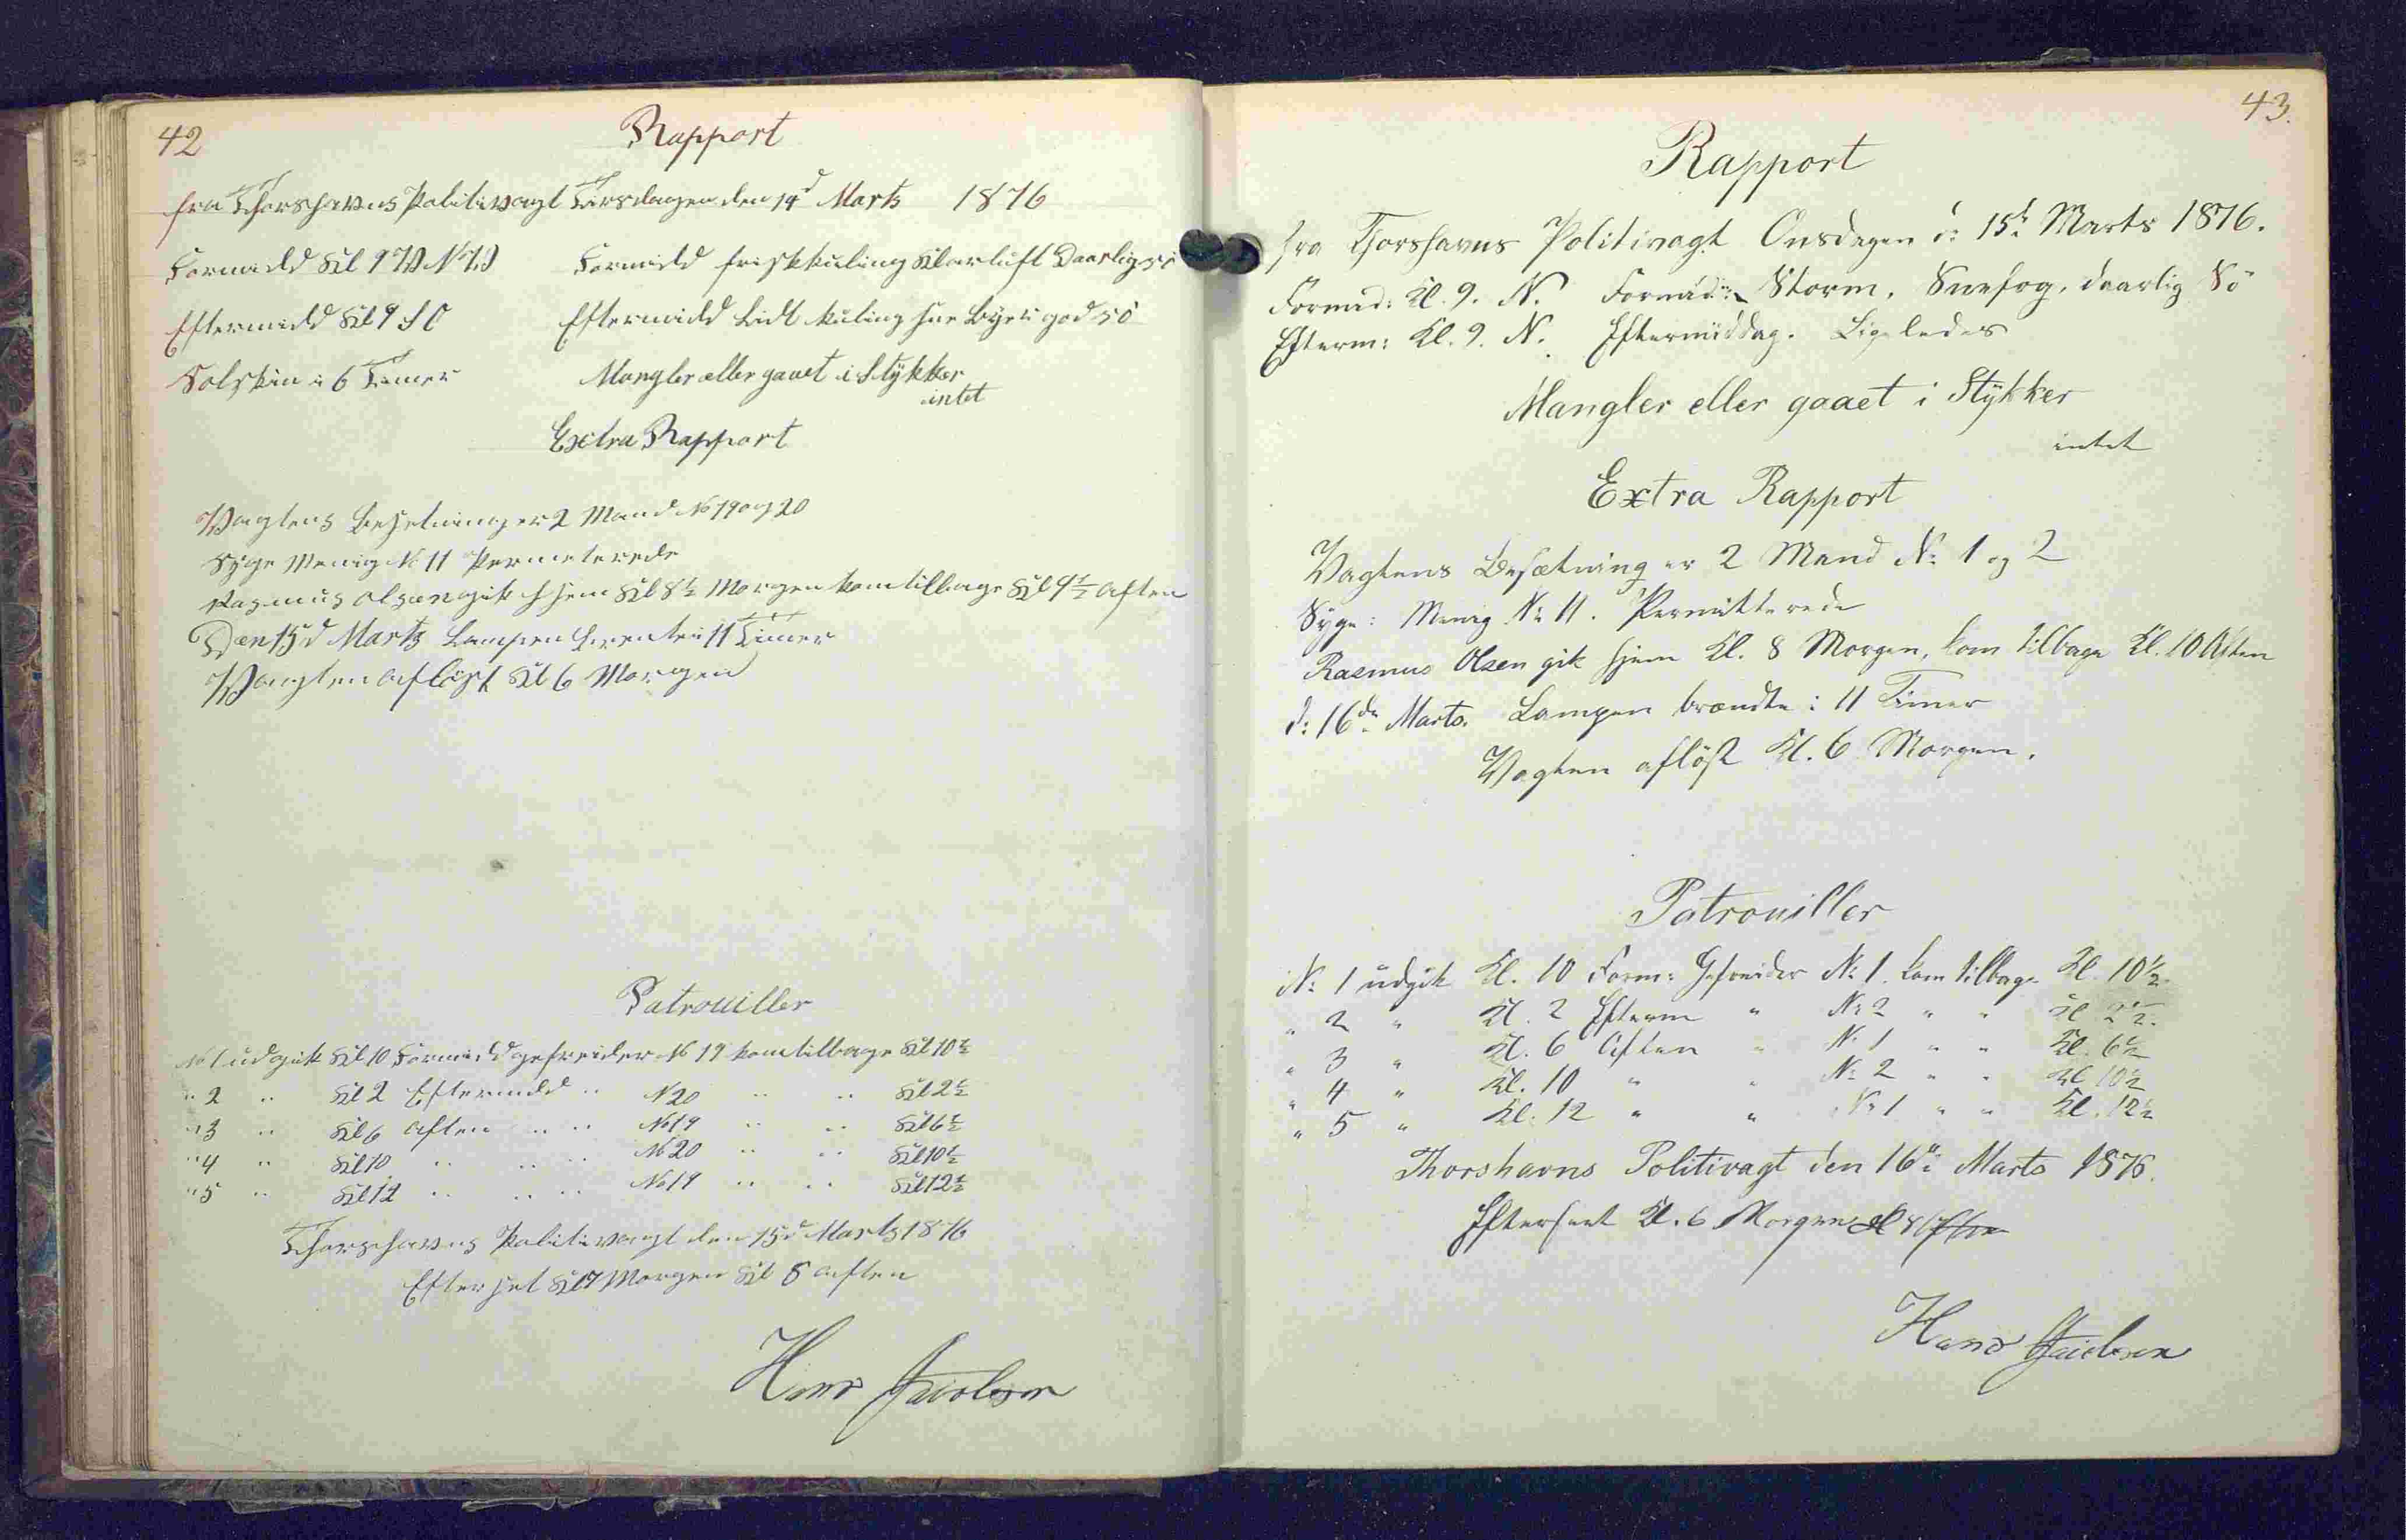 42
Rapport
fra Thorshavns Politivagt Tirsdagen den 14d Marts 1876
Formidd Kl 9 V N V Formidd frisk kuling Klarluft Daarlig sö
Eftermidd Kl 9 S O Eftermidd Lidt kuling Sne Byer god sö
Solskin i 6 Timer Mangler eller gaaet i Stykker
intet
Extra Rapport
Vagtens Besetning er 2 Mand No 19 og 20
Syge Menig No 11 Permeterede
Rasmus Olsen gik hjem Kl 8½ Morgen kom tilbage Kl 9½ Aften
Den 15d Marts Lampen brente i 11 Timer
Vagten aflöst Kl 6 Morgen
Patrouiller
No 1 udgik Kl 10 Formidd gefreider No 19 kom tilbage Kl 10½
" 2 " Kl 2 Eftermidd " N 20 " " Kl 2½
" 3 " Kl 6 Aften " " No 19 " " Kl 6½
" 4 " Kl 10 " " " No 20 " " Kl 10½
" 5 " Kl 12 " " " No 19 " " Kl 12½
Thorshavns Politivagt den 15d Marts 1876
Efterset Kl 7 Morgen Kl 8 Aften
Hans Jacobsen
43.
Rapport
fra Thorshavns Politivagt Onsdagen d: 15d Marts 1876.
Formid: Kl. 9. N. Formid: Storm, Snefog, daarlig Sö
Efterm: Kl. 9. N. Eftermiddag. Ligeledes
Mangler eller gaaet i Stykker
intet
Extra Rapport
Vagtens Besætning er 2 Mand No 1 og 2
Syge: Menig No 11. Permitterede
Rasmus Olsen gik hjem Kl. 8 Morgen, kom tilbage Kl. 10 Aften
d: 16de Marts. Lampen brændte i 11 Timer
Vagten aflöst Kl. 6 Morgen.
Patrouiller
No 1 udgik Kl. 10 Form: Gefreider No 1. kom tilbage Kl. 10½.
" 2 " Kl. 2 Efterm " No 2 " " Kl 2½.
" 3 " Kl. 6 Aften " No 1 " " Kl. 6½
" 4 " Kl. 10 " " No 2 " " Kl 10½
" 5 " Kl. 12 " " No 1 " " Kl. 12½
Thorshavns Politivagt den 16de Marts 1876.
Efterseet Kl. 6 Morgen Kl 8 Aften
Hans Jacobsen